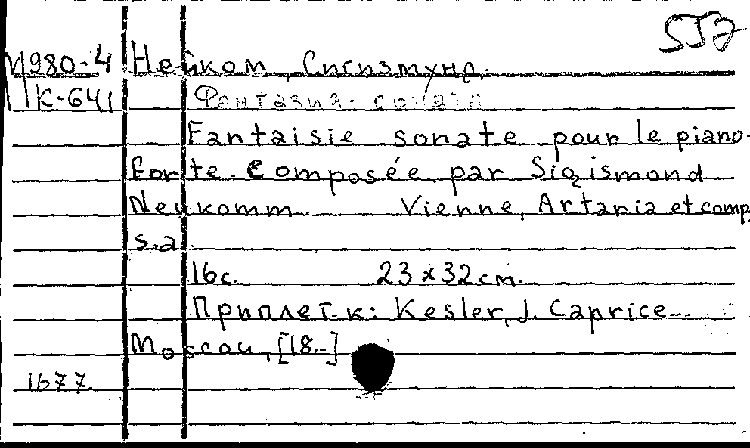 557
М980-4 Нейком, Сигизмунд.
К-641 Фантазия-соната
Fantaisie sonate pour le piano-
forte. Composée par Sigismond
Neukomm Vienne, Artaria et comp,
s.a
16с. 23 x 32 см.
Приплет. к: Kesler, J. Caprice
Moscau, [18-]
1677